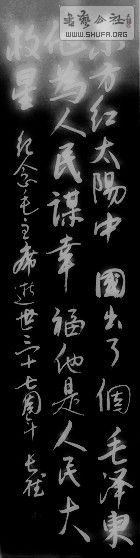 书艺公社
WWW.SHUFA.ORG
东方红太陽中國出了個毛泽東
他為人民謀幸福他是人民大
救星
纪念毛主席逝世三十七周年